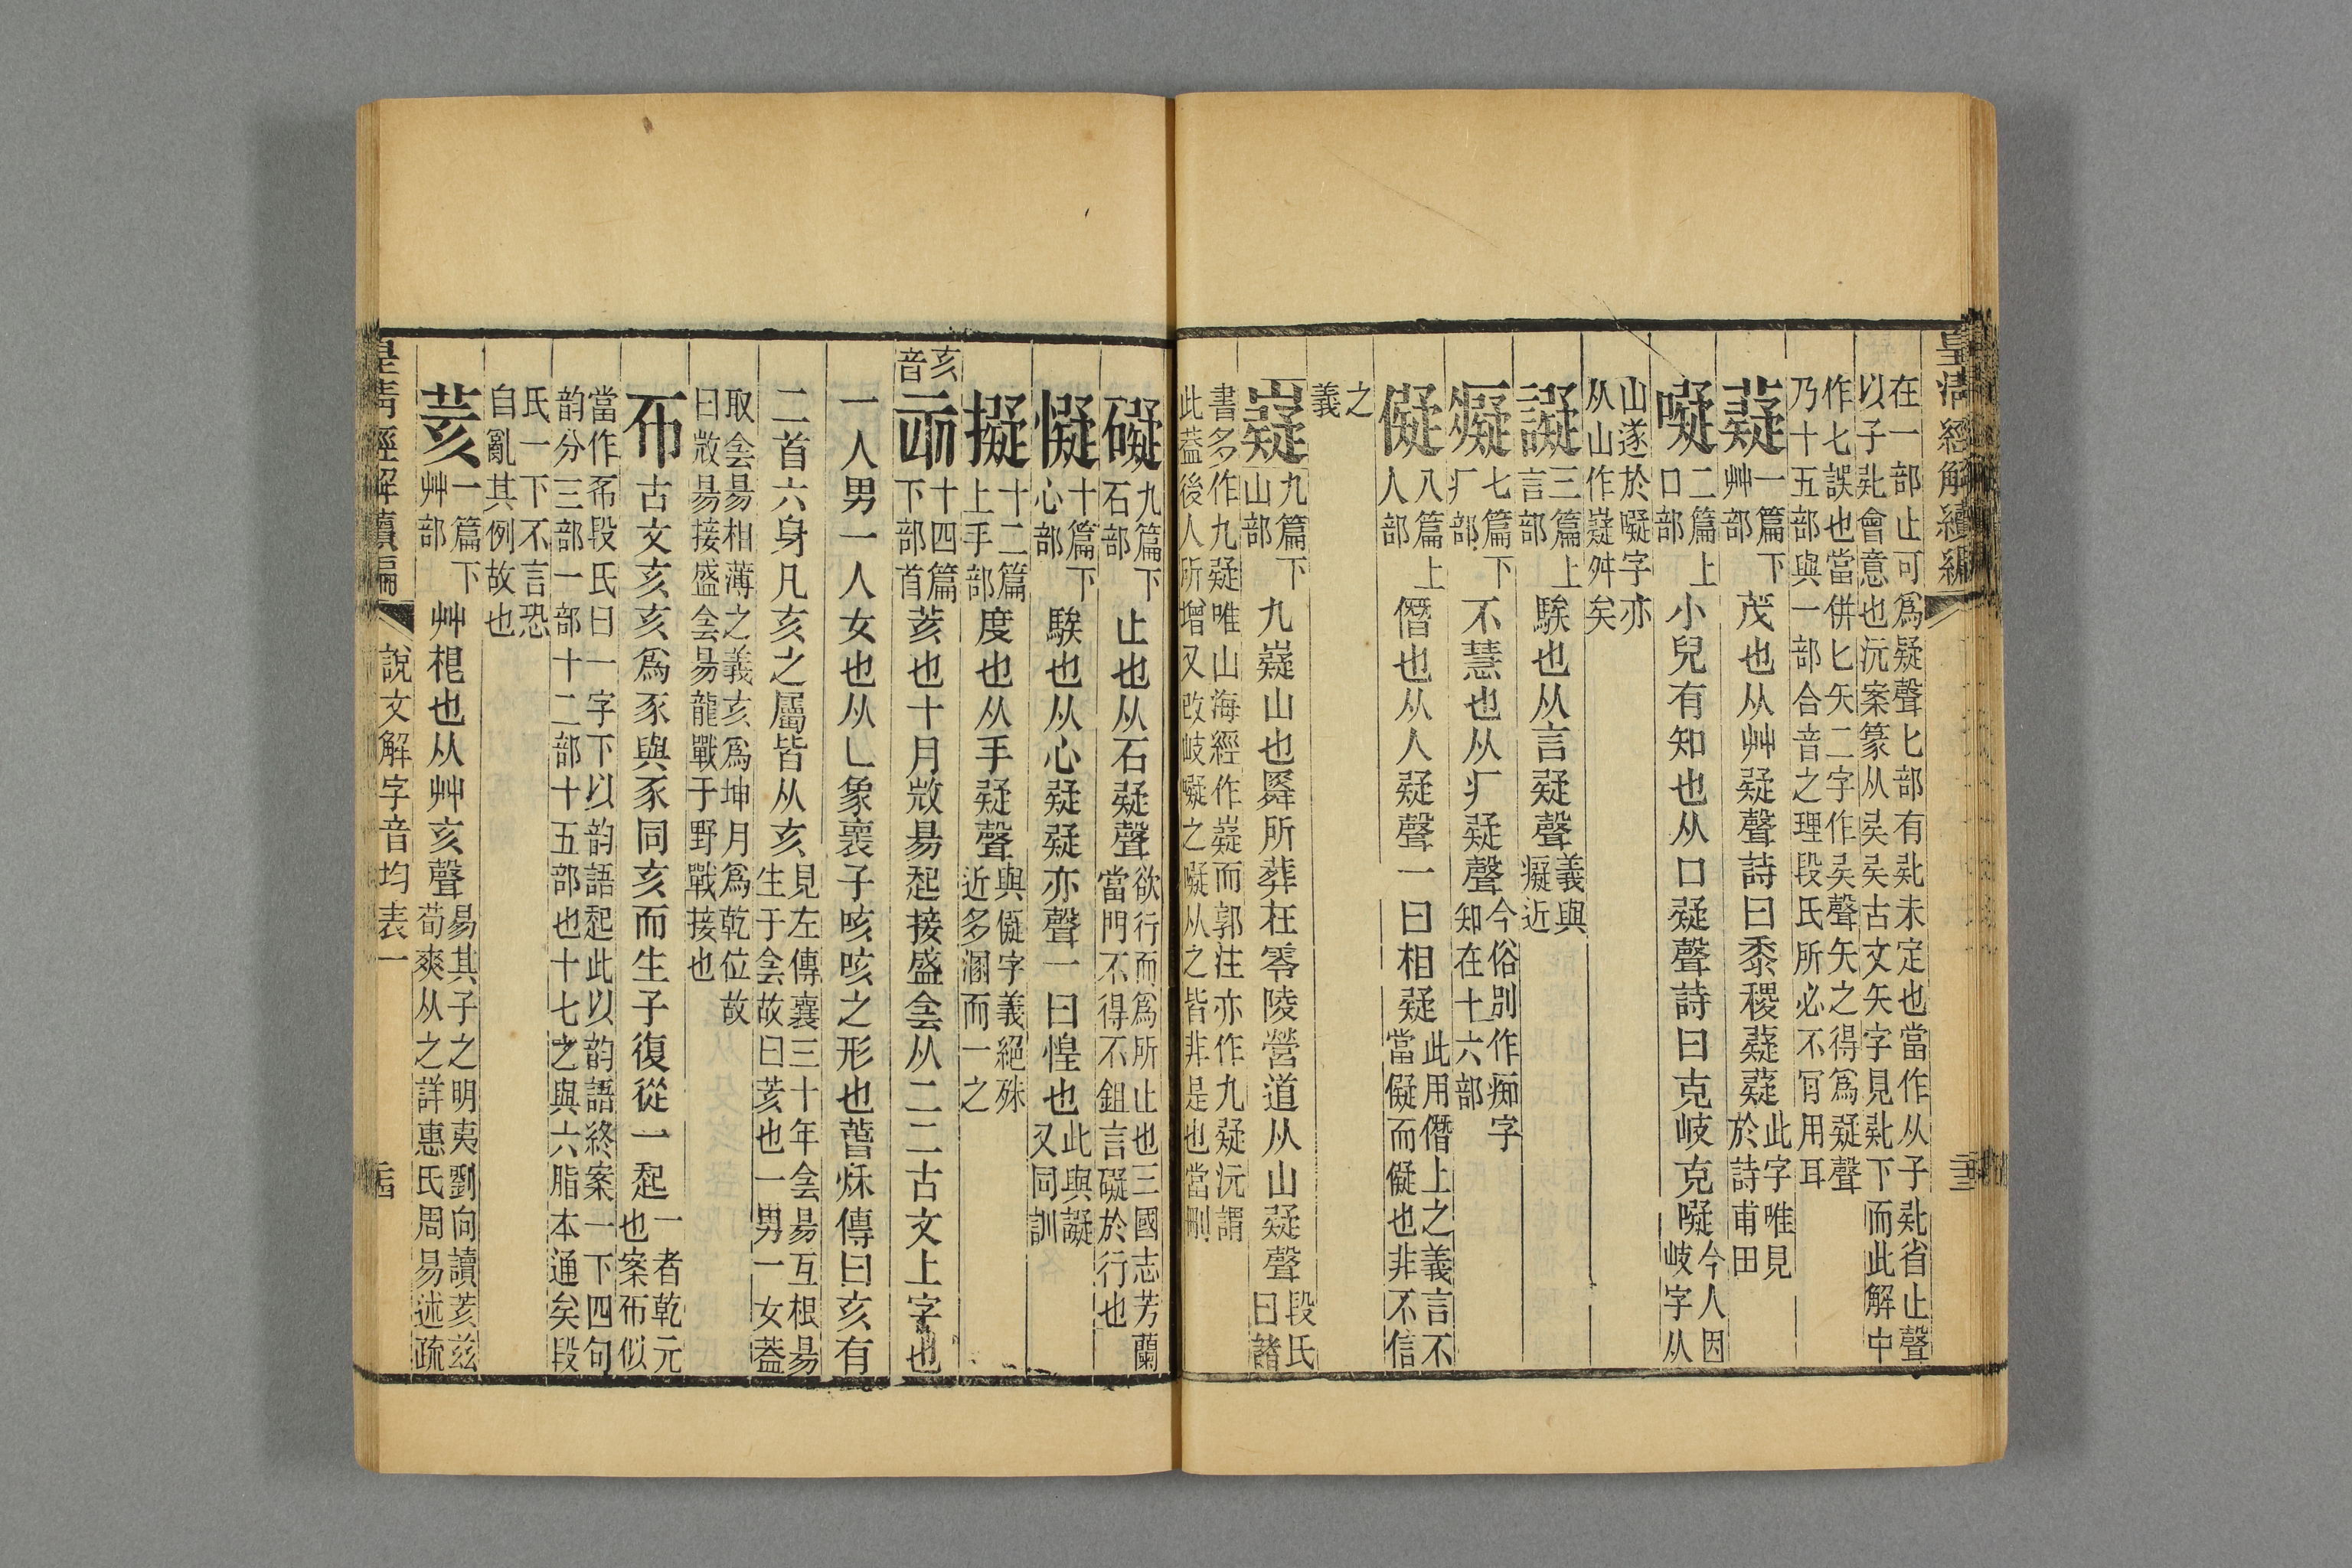 皇清經解續編
在一部止可爲疑聲匕部有𠤕未定也當作从子𠤕省止聲
以子𠤕會意也沅案篆从𠤕𠤕古文矢字見𠤕下而此解中
作七誤也當併匕矢二字作𠤕聲矢之得爲疑聲
乃十五部與一部合音之理段氏所必不肎用耳
薿一篇下艸部茂也从艸疑聲詩曰黍稷薿薿此字唯見於詩甫田
㘈二篇上口部小兒有知也从口疑聲詩曰克岐克㘈今人因岐字从
山遂於㘈字亦从山作嶷舛矣
譺三篇上言部騃也从言疑聲義與癡近
癡七篇下疒部不慧也从疒疑聲今俗別作痴字知在十六部
儗八篇上人部僭也从人疑聲一曰相疑此用僭上之義言不當儗而儗也非不信
之義
嶷九篇下山部九嶷山也舜所葬在零陵營道从山疑聲段氏曰諸
書多作九疑唯山海經作嶷而郭注亦作九疑沅謂
此葢後人所增又改岐㘈之㘈从之皆非是也當刪
礙九篇下石部止也从石疑聲欲行而爲所止也三國志芳蘭當門不得不鉏言礙於行也
懝十篇下心部騃也从心疑疑亦聲一曰惶也此與譺又同訓
擬十二篇上手部度也从手疑聲與儗字義絕殊近多溷而一之
亥音
亥十四篇下部首荄也十月㣲昜起接盛侌从二二古文上字也
一人男一人女也从乚象褱子咳咳之形也萅秌傳曰亥有
二首六身凡亥之屬皆从亥見左傳襄三十年侌昜互根昜生于侌故曰荄也一男一女葢
取侌昜相薄之義亥爲坤月爲乾位故
曰㣲昜接盛侌昜龍戰于野戰接也
古文亥亥爲豕與豕同亥而生子復從一起一者乾元也案似
當作段氏曰一字下以韵語起此以韵語終案一下四句
韵分三部一部十二部十五部也十七之與六脂本通矣段
氏一下不言恐
自亂其例故也
荄一篇下艸部艸根也从艸亥聲易其子之明夷劉向讀荄茲荀爽从之詳惠氏周易述疏
皇清經解續編
說文解字音均表一